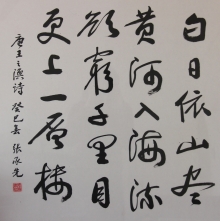 白日依山尽
黄河入海流
欲穷千里目
更上一层楼
唐王之涣诗 癸巳春 张承先